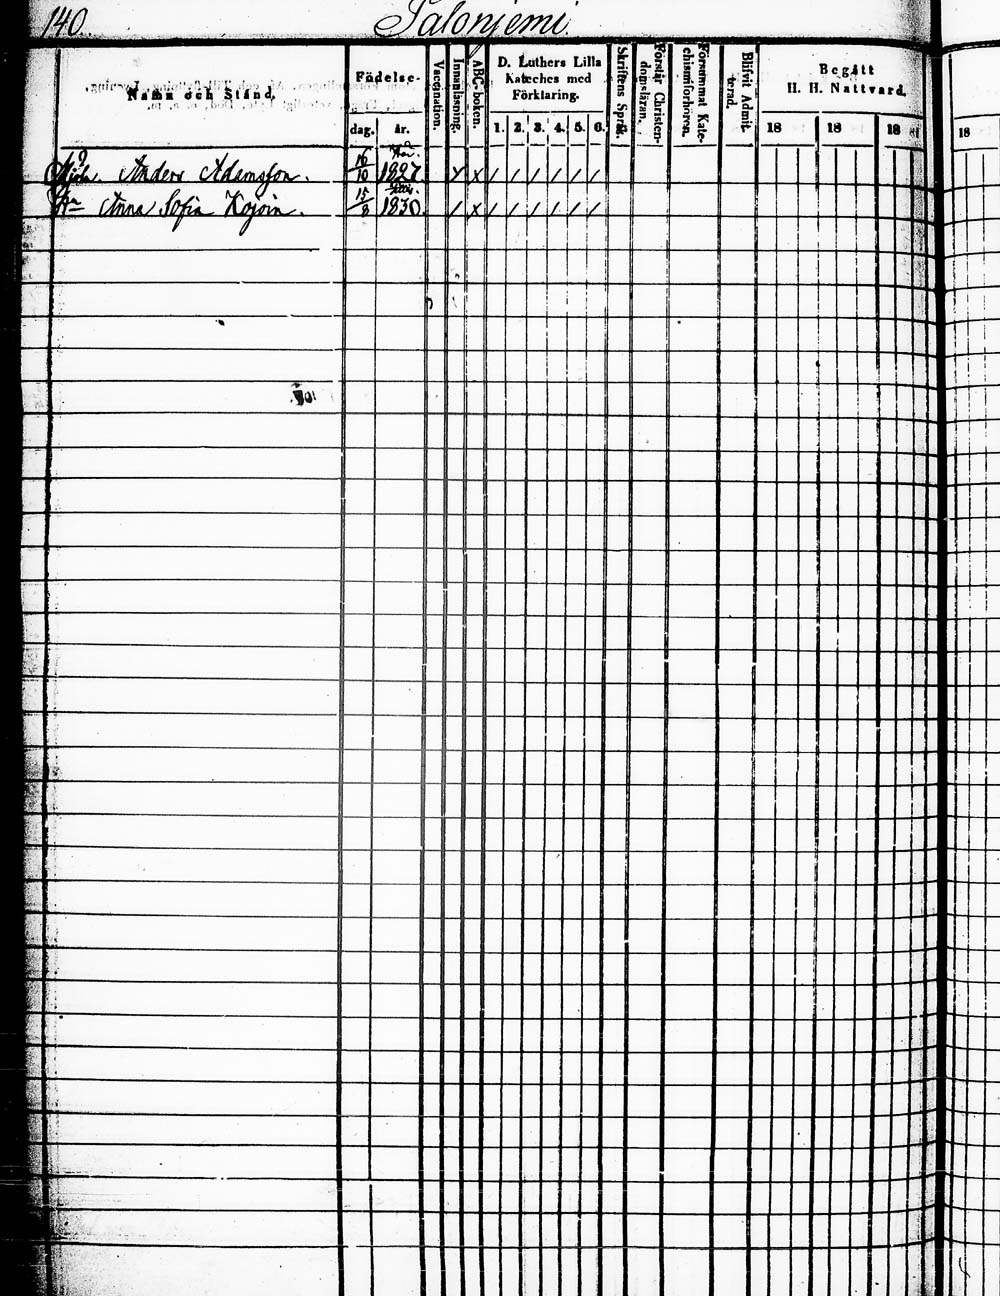 140.
Salonjemi.
Namn och Stånd.
Födelse-
dag.
år.
Vaccination.
Innanläsning.
ABC-boken.
D. Luthers Lilla
Kateches med
Förklaring.
1. 2. 3. 4. 5. 6.
Skriftens Språk.
Förstår Christen-
domsläran.
Försummat Kate-
chismiförhören.
Blifvit Admit-
terad.
Begått
H. H. Nattvard.
18 18 18 81 18
Anders Adamsson. 16/10 1827. x x / / / / / /
Anna Sofia Kojoin. 15/8 1830. / x / / / / / /